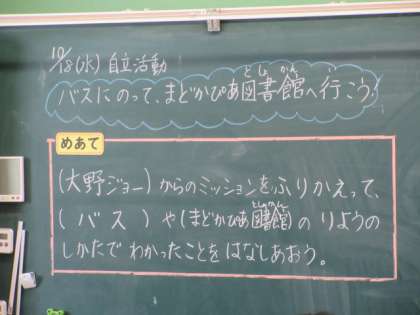 10/18(水) 自立活動
バスにのって、まどかぴあ図書館へ行こう!
めあて
(大野ジョー)からのミッションをふりかえって、
( バス )や(まどかぴあ図書館)の りようの
しかたで わかったことを はなしあおう。